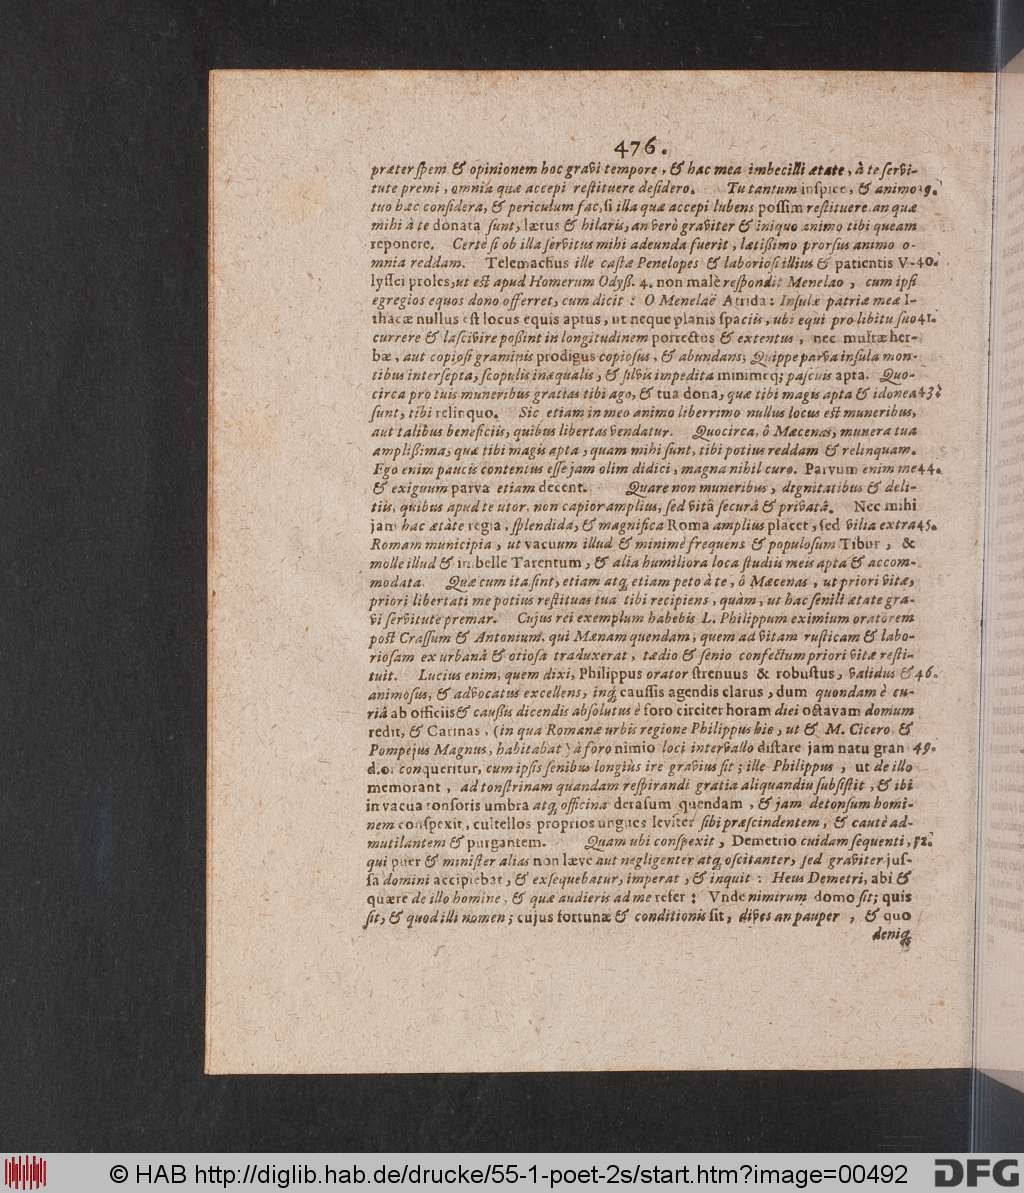 476.
præter spem & opinionem hoc gravi tempore, & hac mea imbecilli ætate, à te servi-
tute premi, omnia quæ accepi restituere desidero. Tu tantum inspice, & animo 39.
tuo hæc considera, & periculum fac, si illa quæ accepi lubens possim restituere an quæ
mihi à te donata sunt, lætus & hilaris, an verò graviter & iniquo animo tibi queam
reponere. Certe si ob illa servitus mihi adeunda fuerit, lætißimo prorsus animo o-
mnia reddam. Telemachus ille castæ Penelopes & laboriosi illius & patientis V- 40.
lyssei proles, ut est apud Homerum Odyß. 4. non malè respondit Menelao, cum ipsi
egregios equos dono offerret, cum dicit: O Menelaë Atrida: Insulæ patriæ meæ I-
thacæ nullus est locus equis aptus, ut neque planis spaciis, ubi equi pro libitu suo 41.
currere & lascivire poßint in longitudinem porrectus & extentus, nec multæ her-
bæ, aut copiosi graminis prodigus copiosus, & abundans; Quippe parva insula mon-
tibus intersepta, scopulis inæqualis, & silvis impedita minimeq; pascuis apta. Quo-
circa pro tuis muneribus gratias tibi ago, & tua dona, quæ tibi magis apta & idonea 43.
sunt, tibi relinquo. Sic etiam in meo animo liberrimo nullus locus est muneribus,
aut talibus beneficiis, quibus libertas vendatur. Quocirca, ô Mæcenas, munera tua
amplißima, quæ tibi magis apta, quam mihi sunt, tibi potius reddam & relinquam.
Ego enim paucis contentus esse jam olim didici, magna nihil curo. Parvum enim me 44.
& exiguum parva etiam decent. Quare non muneribus, dignitatibus & deli-
tiis, quibus apud te utor, non capior amplius, sed vitâ securâ & privatâ. Nec mihi
jam hac ætate regia, splendida, & magnifica Roma amplius placet, sed vilia extra 45.
Romam municipia, ut vacuum illud & minimè frequens & populosum Tibur, &
molle illud & imbelle Tarentum, & alia humiliora loca studiis meis apta & accom-
modata. Quæ cum ita sint, etiam atq; etiam peto à te, ô Mæcenas, ut priori vitæ,
priori libertati me potius restituas tua tibi recipiens, quàm, ut hac senili ætate gra-
vi servitute premar. Cujus rei exemplum habebis L. Philippum eximium oratorem
post Crassum & Antonium, qui Mænam quendam, quem ad vitam rusticam & labo-
riosam ex urbanâ & otiosa traduxerat, tædio & senio confectum priori vitæ resti-
tuit. Lucius enim, quem dixi, Philippus orator strenuus & robustus, validus & 46.
animosus, & advocatus excellens, inq; caussis agendis clarus, dum quondam è cu-
riâ ab officiis & caußis dicendis absolutus è foro circiter horam diei octavam domum
redit, & Carinas, (in qua Romanæ urbis regione Philippus hic, ut & M. Cicero & 
Pompejus Magnus, habitabat) à foro nimio loci intervallo distare jam natu gran 49.
d.o. conqueritur, cum ipsis senibus longiùs ire gravius sit; ille Philippus, ut de illo
memorant, ad tonstrinam quandam respirandi gratia aliquandiu subsistit, & ibi
in vacua tonsoris umbra atq; officina derasum quendam, & jam detonsum homi-
nem conspexit, cultellos proprios ungues leviter sibi præscindentem, & cautè ad-
mutilantem & purgantem. Quam ubi conspexit, Demetrio cuidam sequenti, 52.
qui puer & minister alias non læve aut negligenter atq; oscitanter, sed graviter jus-
sa domini accipiebat, & exsequebatur, imperat, & inquit: Heus Demetri, abi &
quære de illo homine, & quæ audieris ad me refer: Vnde nimirum domo sit; quis
sit, & quod illi nomen; cujus fortunæ & conditionis sit, dives an pauper, & quo
deniq;
© HAB http://diglib.hab.de/drucke/55-1-poet-2s/start.htm?image=00492
DFG